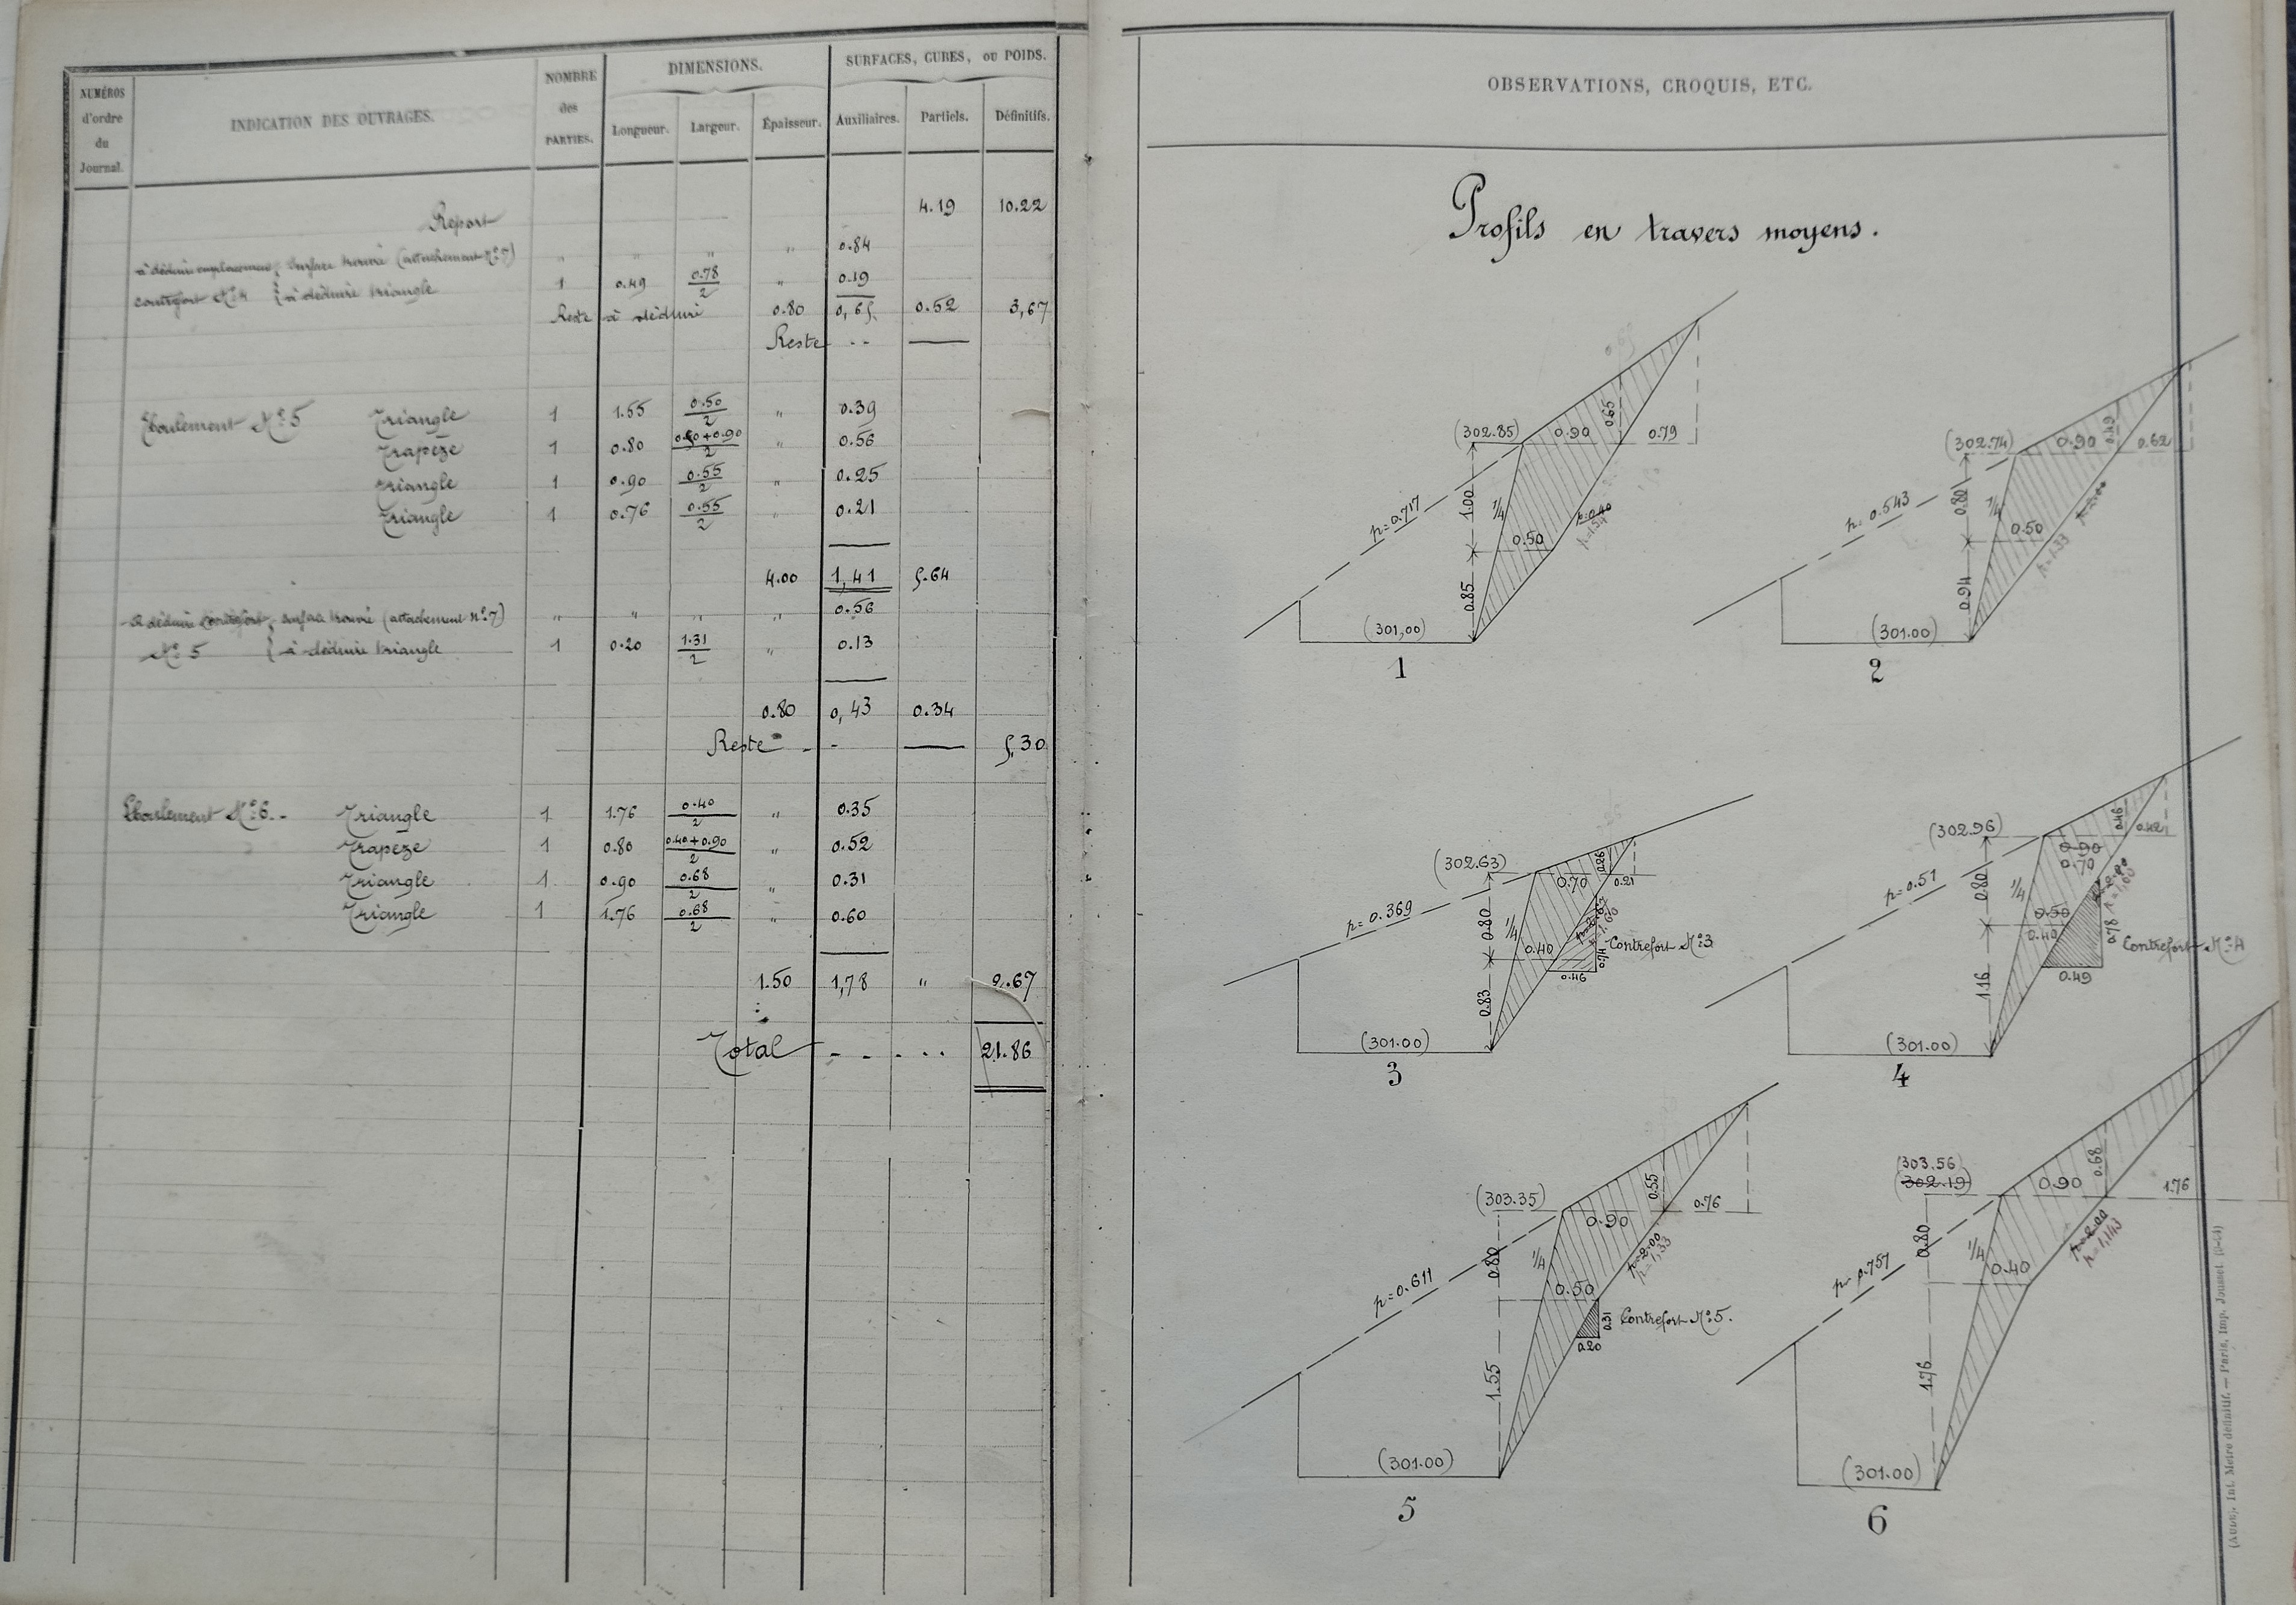 NUMÉROS d'ordre du Journal.
INDICATION DES OUVRAGES.
NOMBRE des PARTIES.
DIMENSIONS.
Longueur. Largeur. Épaisseur.
SURFACES, CUBES, OU POIDS.
Auxiliaires. Partiels. Définitifs.
Report 4.19 10.22
à déduire emplacement { surface trouvée (attachement N°7) " " " " 0.84
contrefort N°4 { à déduire triangle 1 0.49 0.78/2 " 0.19
Reste à déduire 0.80 0,65 0.52 3,67
Reste - -
Eboulement N°5 Triangle 1 1.55 0.50/2 " 0.39
Trapèze 1 0.80 0.50+0.90/2 " 0.56
Triangle 1 0.90 0.55/2 " 0.25
Triangle 1 0.76 0.55/2 " 0.21
4.00 1,41 5.64
à déduire contrefort { surface trouvée (attachement N°7) " " " " 0.56
N° 5 { à déduire triangle 1 0.20 1.31/2 " 0.13
0.80 0,43 0.34
Reste - - 5,30
Eboulement N°6.- Triangle 1 1.76 0.40/2 " 0.35
Trapèze 1 0.80 0.40+0.90/2 " 0.52
Triangle 1 0.90 0.68/2 " 0.31
Triangle 1 1.76 0.68/2 " 0.60
1.50 1,78 " 2.67
Total - - . . . 21.86
OBSERVATIONS, CROQUIS, ETC.
Profils en travers moyens.
(302.85) 0.90 0.65 0.79
p=0.717 1.00 1/4
0.50
0.85
(301,00)
1
(302.74) 0.90 0.49 0.62
p=0.543 0.80 1/4 p=2.00
0.50 p=1.33
0.94
(301.00)
2
(302.63) 0.70 0.26 0.21
p=0.369 0.80 1/4
0.40 Contrefort N°3
0.74
0.46
0.83
(301.00)
3
(302.96) 0.46 0.42
0.90
0.70
p=0.51 0.80 1/4
0.50
0.40 0.78 Contrefort N°4
0.49
1.16
(301.00)
4
(303.35) 0.90 0.55 0.76
p=0.611 0.80 1/4 p=2.00
p=1,33
0.50
0.31 Contrefort N°5.
0.20
1.55
(301.00)
5
(303.56)
(302.19) 0.90 0.68 1.76
p=0.757 0.80 1/4 p=2.00
p=1,143
0.40
1.76
(301.00)
6
Int. Metré définitif. — Paris, Imp. Jousset.